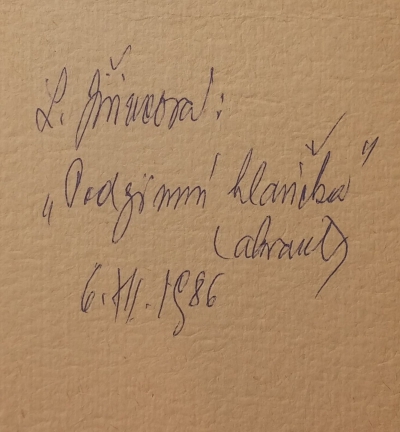 L. Jiřincová:
„Podzimní hlavička"
(akvarel)
6. XII. 1986